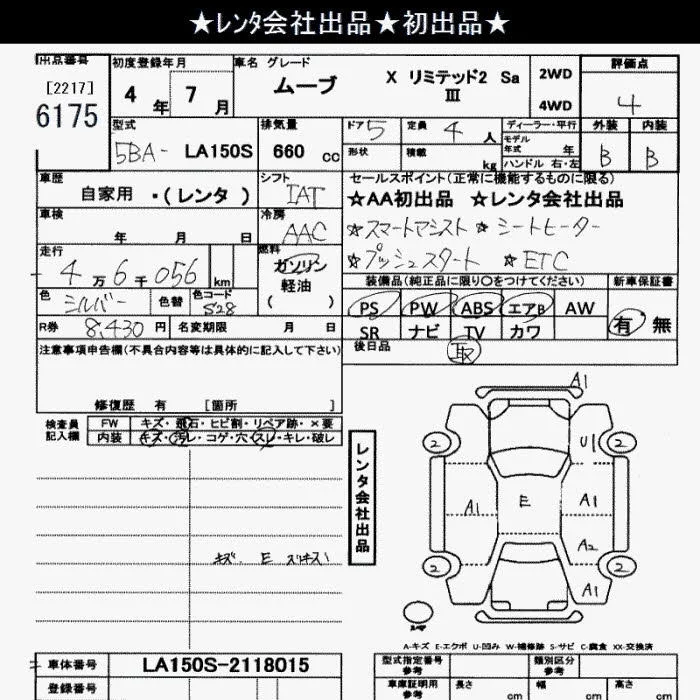 ★レンタ会社出品★初出品★
出品番号 初度登録年月 車名 グレード 評価点
[2217] 4年 7月 ムーブ X リミテッド2 Sa Ⅲ 2WD 4WD 4
6175
型式 排気量 ドア 5 定員 4 人 ディーラー・平行 外装 内装
5BA- LA150S 660 cc 形状 積載 kg モデル年式 年 B B
ハンドル 右・左
車歴 シフト セールスポイント(正常に機能するものに限る)
自家用 ・(レンタ) IAT ★AA初出品 ★レンタ会社出品
車検 年 月 日 冷房 AAC ☆スマートアシスト ☆シートヒーター
走行 燃料 ☆プッシュスタート ☆ETC
4万6千056 km ガソリン 軽油 ( )
装備品(純正品に限り○をつけてください) 新車保証書
色 シルバー 色替 色コード S28 PS PW ABS エアB AW 有 無
R券 8,430円 名変期限 月 日 SR ナビ TV カワ
注意事項申告欄(不具合内容等は具体的に記入して下さい) 後日品 取
修復歴 有 [箇所 ]
検査員記入欄 FW キズ・飛石・ヒビ割・リペア跡・×要
内装 キズ・汚レ・コゲ・穴・スレ・キレ・破レ
レンタ会社出品
A1
2 U1 2
A1 E A1
A2
2 2
A1
キズ、E
A-キズ E-エクボ U-凹み W-補修跡 S-サビ C-腐食 XX-交換済
車体番号 LA150S-2118015 型式指定番号 参考 類別区分 参考
登録番号 車庫証明用 参考 長さ cm 幅 cm 高さ cm